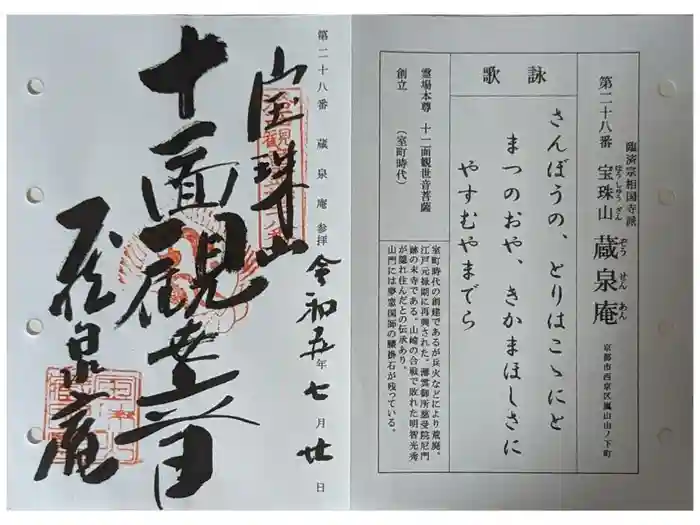 臨済宗相国寺派
第二十八番 宝珠山 蔵泉庵
ほうしゅうざん
ぞうせんあん
京都市西京区嵐山山ノ下町
詠歌
さんぼうの、とりはこゝにと
まつのおや、きかまほしさに
やすむやまでら
霊場本尊 十一面観世音菩薩
創立 (室町時代)
室町時代の創建であるが兵火などにより荒廃。
江戸元禄期に再興された。薄雲御所慈受院尼門
跡の末寺である。山崎の合戦で敗れた明智光秀
が隠れ住んだとの伝承あり。
山門には夢窓国師の腰掛石が残っている。
宝珠山
十一面観世音
蔵泉庵
令和五年七月廿日
第二十八番 蔵泉庵 参拝